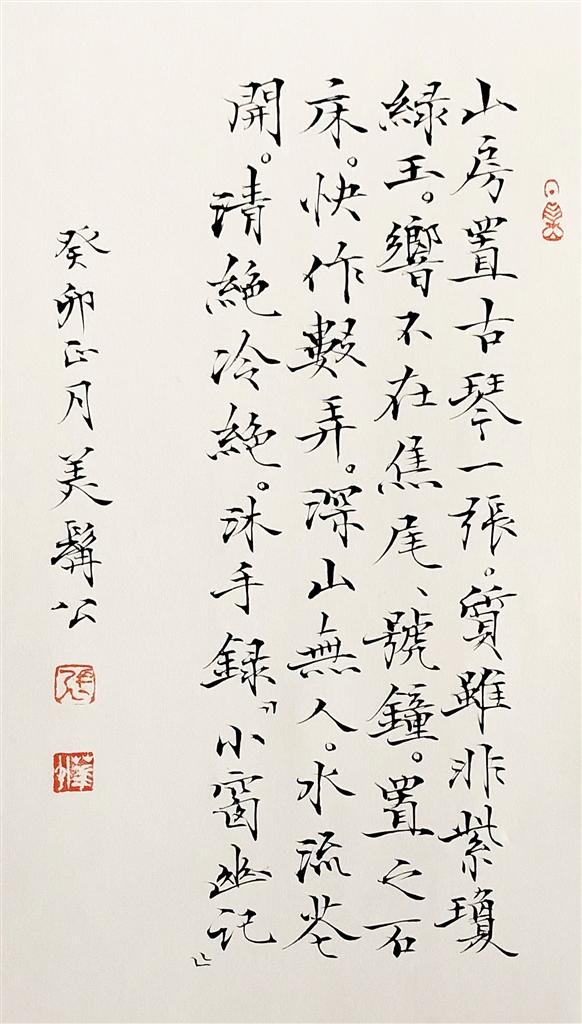 山房置古琴一張。質雖非紫瓊
緑玉。響不在焦尾、號鐘。置之石
床。快作數弄。深山無人。水流花
開。清絶冷絶。沐手録『小窗幽記』
癸卯正月美髯公